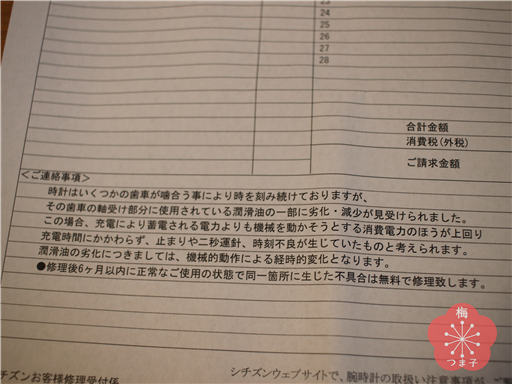 23
24
25
26
27
28
合計金額
消費税(外税)
ご請求金額
<ご連絡事項>
時計はいくつかの歯車が噛合う事により時を刻み続けておりますが、
その歯車の軸受け部分に使用されている潤滑油の一部に劣化・減少が見受けられました。
この場合、充電により蓄電される電力よりも機械を動かそうとする消費電力のほうが上回り
充電時間にかかわらず、止まりや二秒運針、時刻不良が生じていたものと考えられます。
潤滑油の劣化につきましては、機械的動作による経時的変化となります。
●修理後6ヶ月以内に正常なご使用の状態で同一箇所に生じた不具合は無料で修理致します。
梅
つま子
チズンお客様修理受付係
シチズンウェブサイトで、腕時計の取扱い注意事項が、ご